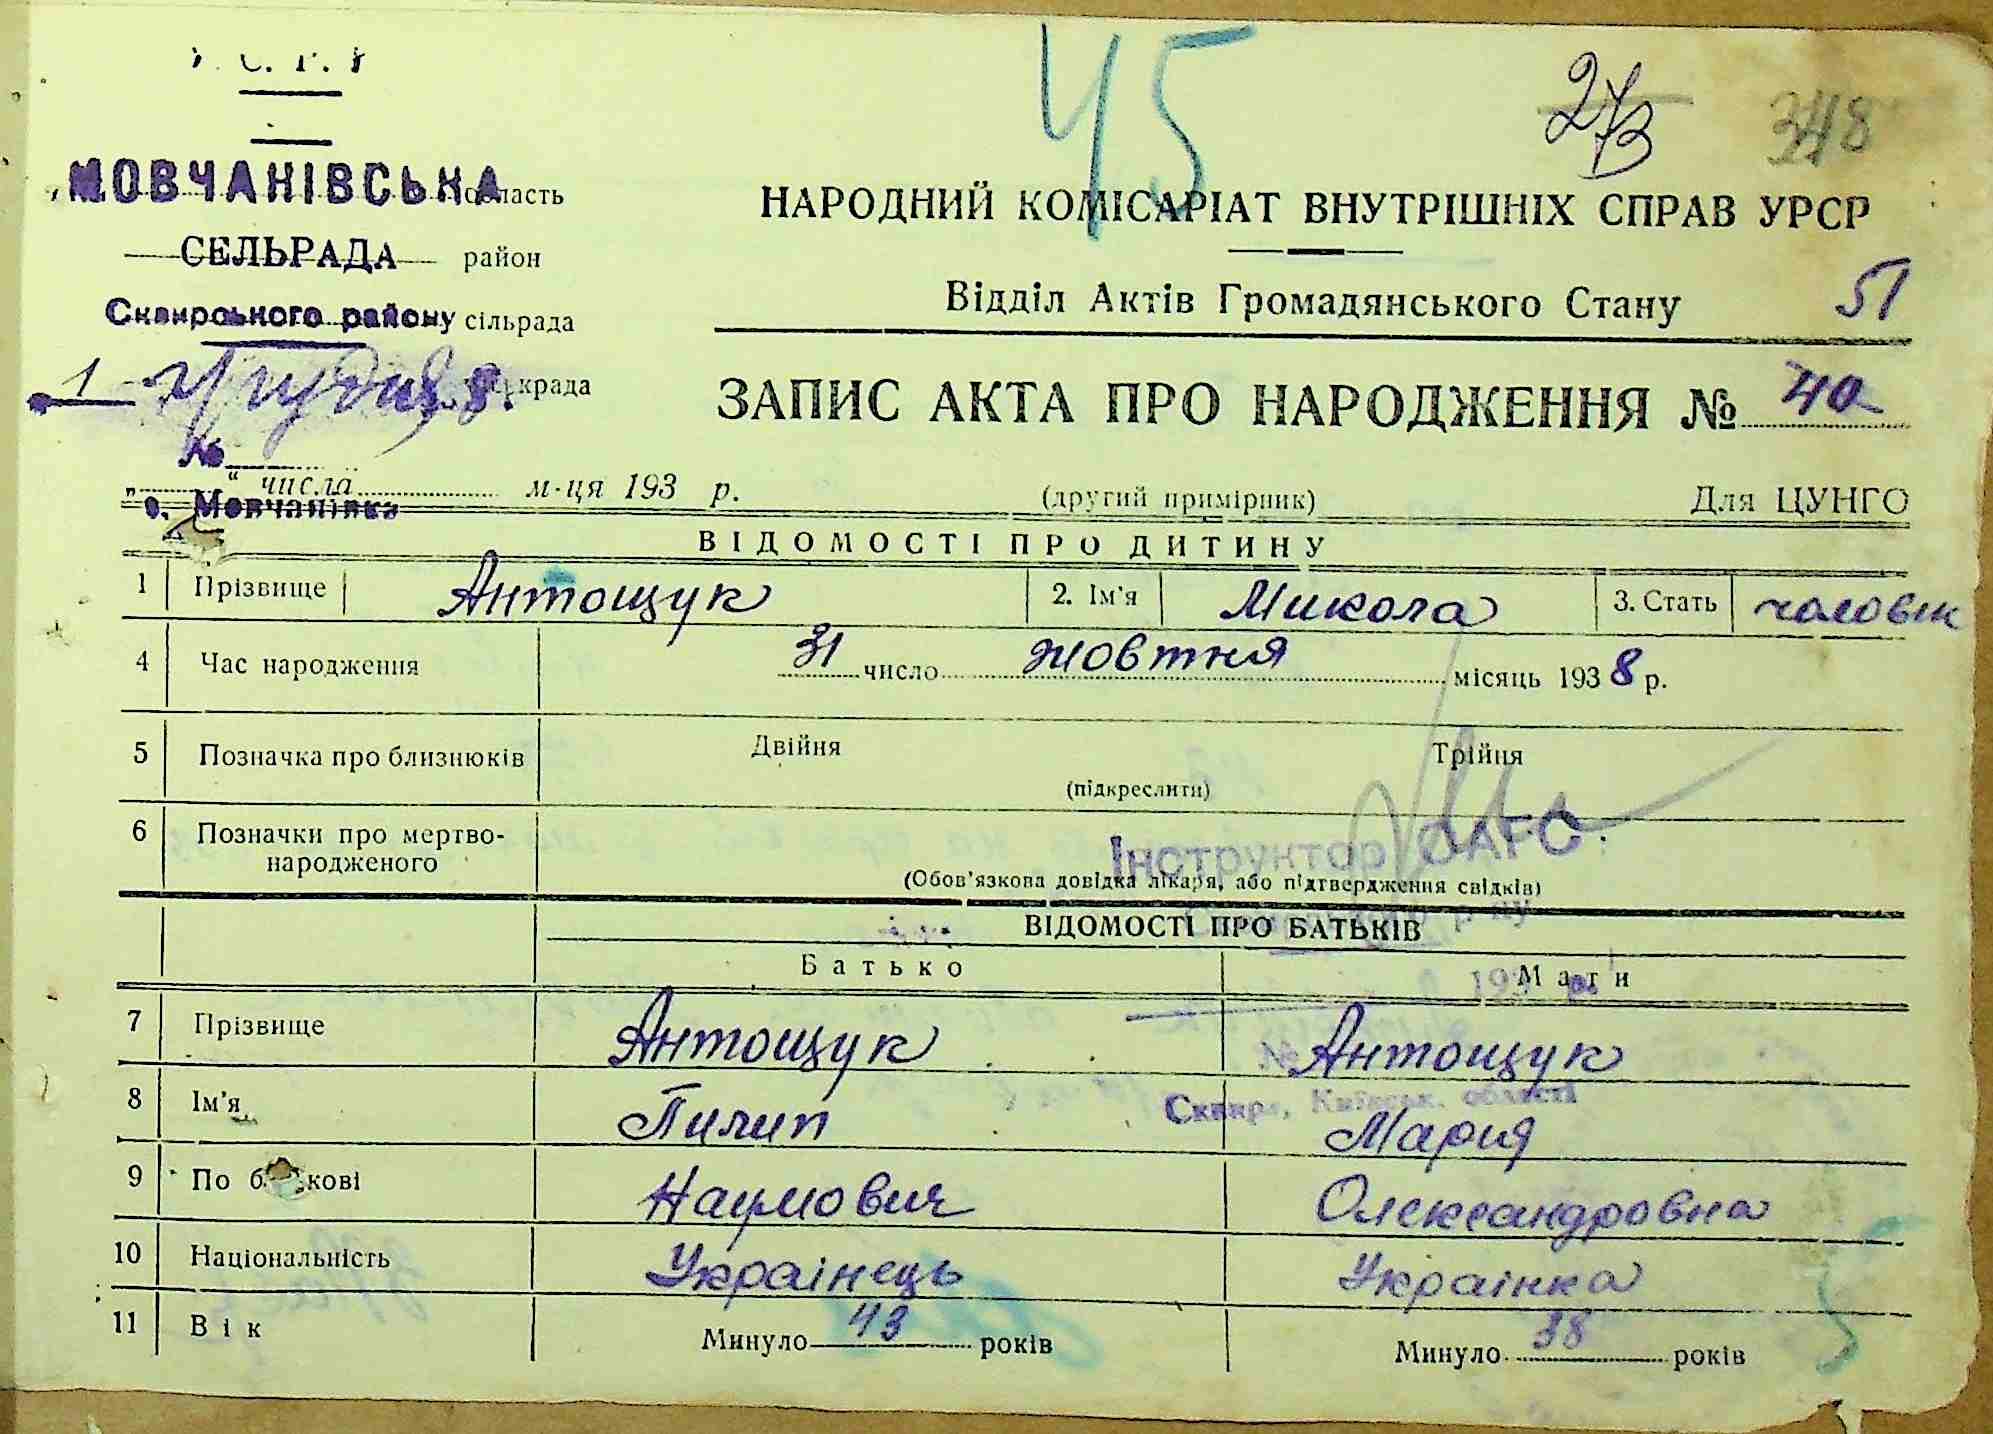 У. С. Р. Р
45
348
МОВЧАНІВСЬКА область
НАРОДНИЙ КОМІСАРІАТ ВНУТРІШНІХ СПРАВ УРСР
СЕЛЬРАДА район
Сквирського району сільрада
Відділ Актів Громадянського Стану 51
1 грудня 8.
ЗАПИС АКТА ПРО НАРОДЖЕННЯ № 40
№
„ “ числа м-ця 193 р.
(другий примірник) Для ЦУНГО
с. Мовчанівка
ВІДОМОСТІ ПРО ДИТИНУ
1 Прізвище Антощук 2. Ім'я Микола 3. Стать чоловік
4 Час народження 31 число жовтня місяць 1938 р.
5 Позначка про близнюків Двійня Трійня
(підкреслити)
6 Позначки про мертвонародженого
Інструктор ОАГС.
(Обов'язкова довідка лікаря, або підтвердження свідків)
ВІДОМОСТІ ПРО БАТЬКІВ
Батько Мати
193 р.
7 Прізвище Антощук Антощук
№
Сквира, Київськ. області
8 Ім'я Пилип Мария
9 По батькові Наумович Олександровна
10 Національність Украінець Украінка
11 Вік Минуло 43 років Минуло 38 років